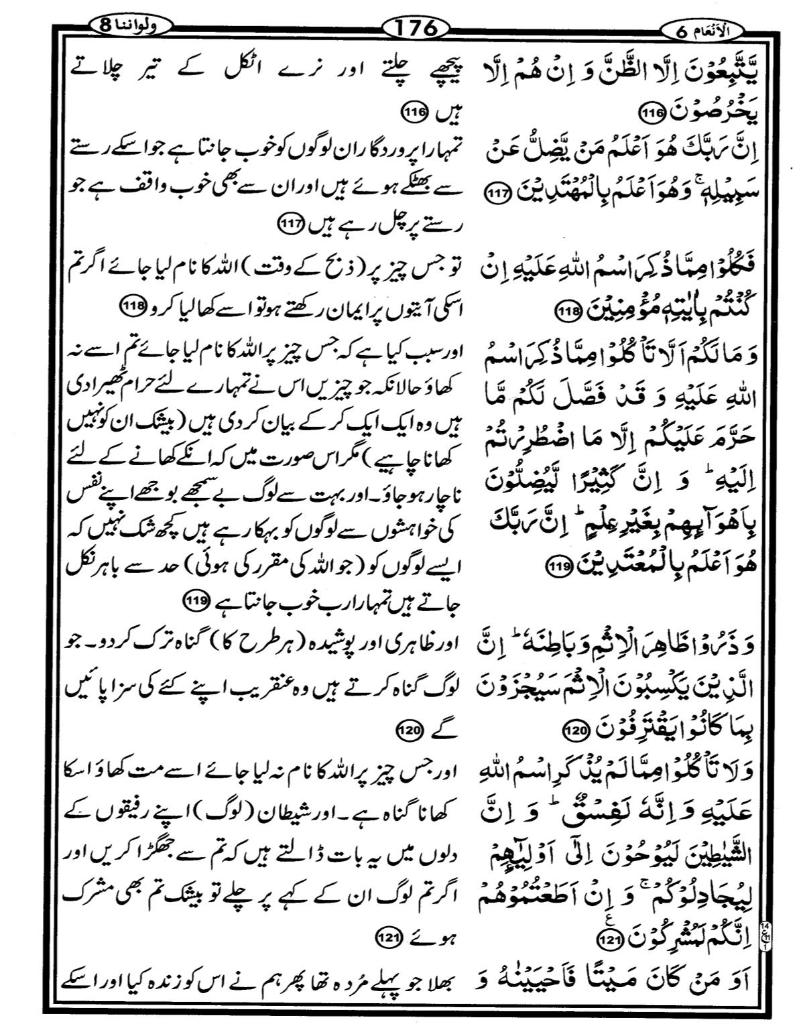 الْاَنْعَام 6
176
ولواننا 8
يَّتَّبِعُوْنَ اِلَّا الظَّنَّ وَ اِنْ هُمْ اِلَّا
يَخْرُصُوْنَ 116
اِنَّ رَبَّكَ هُوَ اَعْلَمُ مَنْ يَّضِلُّ عَنْ
سَبِيْلِهٖ ۚ وَهُوَ اَعْلَمُ بِالْمُهْتَدِيْنَ 117
فَكُلُوْا مِمَّا ذُكِرَ اسْمُ اللّٰهِ عَلَيْهِ اِنْ
كُنْتُمْ بِاٰيٰتِهٖ مُؤْمِنِيْنَ 118
وَ مَا لَكُمْ اَلَّا تَاْكُلُوْا مِمَّا ذُكِرَ اسْمُ
اللّٰهِ عَلَيْهِ وَ قَدْ فَصَّلَ لَكُمْ مَّا
حَرَّمَ عَلَيْكُمْ اِلَّا مَا اضْطُرِرْتُمْ
اِلَيْهِ ؕ وَ اِنَّ كَثِيْرًا لَّيُضِلُّوْنَ
بِاَهْوَآىِٕهِمْ بِغَيْرِ عِلْمٍ ؕ اِنَّ رَبَّكَ
هُوَ اَعْلَمُ بِالْمُعْتَدِيْنَ 119
وَ ذَرُوْا ظَاهِرَ الْاِثْمِ وَ بَاطِنَهٗ ؕ اِنَّ
الَّذِيْنَ يَكْسِبُوْنَ الْاِثْمَ سَيُجْزَوْنَ
بِمَا كَانُوْا يَقْتَرِفُوْنَ 120
وَلَا تَاْكُلُوْا مِمَّا لَمْ يُذْكَرِ اسْمُ اللّٰهِ
عَلَيْهِ وَ اِنَّهٗ لَفِسْقٌ ؕ وَ اِنَّ
الشَّيٰطِيْنَ لَيُوْحُوْنَ اِلٰٓى اَوْلِيٰٓـِٕهِمْ
لِيُجَادِلُوْكُمْ ۚ وَ اِنْ اَطَعْتُمُوْهُمْ
اِنَّكُمْ لَمُشْرِكُوْنَ ع 121
اَوَ مَنْ كَانَ مَيْتًا فَاَحْيَيْنٰهُ وَ
پیچھے چلتے اور نرے اٹکل کے تیر چلاتے
ہیں 116
تمہارا پروردگار ان لوگوں کو خوب جانتا ہے جو اسکے رستے
سے بھٹکے ہوئے ہیں اور ان سے بھی خوب واقف ہے جو
رستے پر چل رہے ہیں 117
تو جس چیز پر (ذبح کے وقت) اللہ کا نام لیا جائے اگر تم
اسکی آیتوں پر ایمان رکھتے ہو تو اسے کھا لیا کرو 118
اور سبب کیا ہے کہ جس چیز پر اللہ کا نام لیا جائے تم اسے نہ
کھاؤ حالانکہ جو چیزیں اس نے تمہارے لئے حرام ٹھیرا دی
ہیں وہ ایک ایک کر کے بیان کر دی ہیں (بیشک ان کو نہیں
کھانا چاہیے) مگر اس صورت میں کہ انکے کھانے کے لئے
ناچار ہو جاؤ۔ اور بہت سے لوگ بے سمجھے بوجھے اپنے نفس
کی خواہشوں سے لوگوں کو بہکا رہے ہیں کچھ شک نہیں کہ
ایسے لوگوں کو (جو اللہ کی مقرر کی ہوئی) حد سے باہر نکل
جاتے ہیں تمہارا رب خوب جانتا ہے 119
اور ظاہری اور پوشیدہ (ہر طرح کا) گناہ ترک کر دو۔ جو
لوگ گناہ کرتے ہیں وہ عنقریب اپنے کئے کی سزا پائیں
گے 120
اور جس چیز پر اللہ کا نام نہ لیا جائے اسے مت کھاؤ اسکا
کھانا گناہ ہے۔ اور شیطان (لوگ) اپنے رفیقوں کے
دلوں میں یہ بات ڈالتے ہیں کہ تم سے جھگڑا کریں اور
اگر تم لوگ ان کے کہے پر چلے تو بیشک تم بھی مشرک
ہوئے 121
بھلا جو پہلے مُردہ تھا پھر ہم نے اس کو زندہ کیا اور اسکے